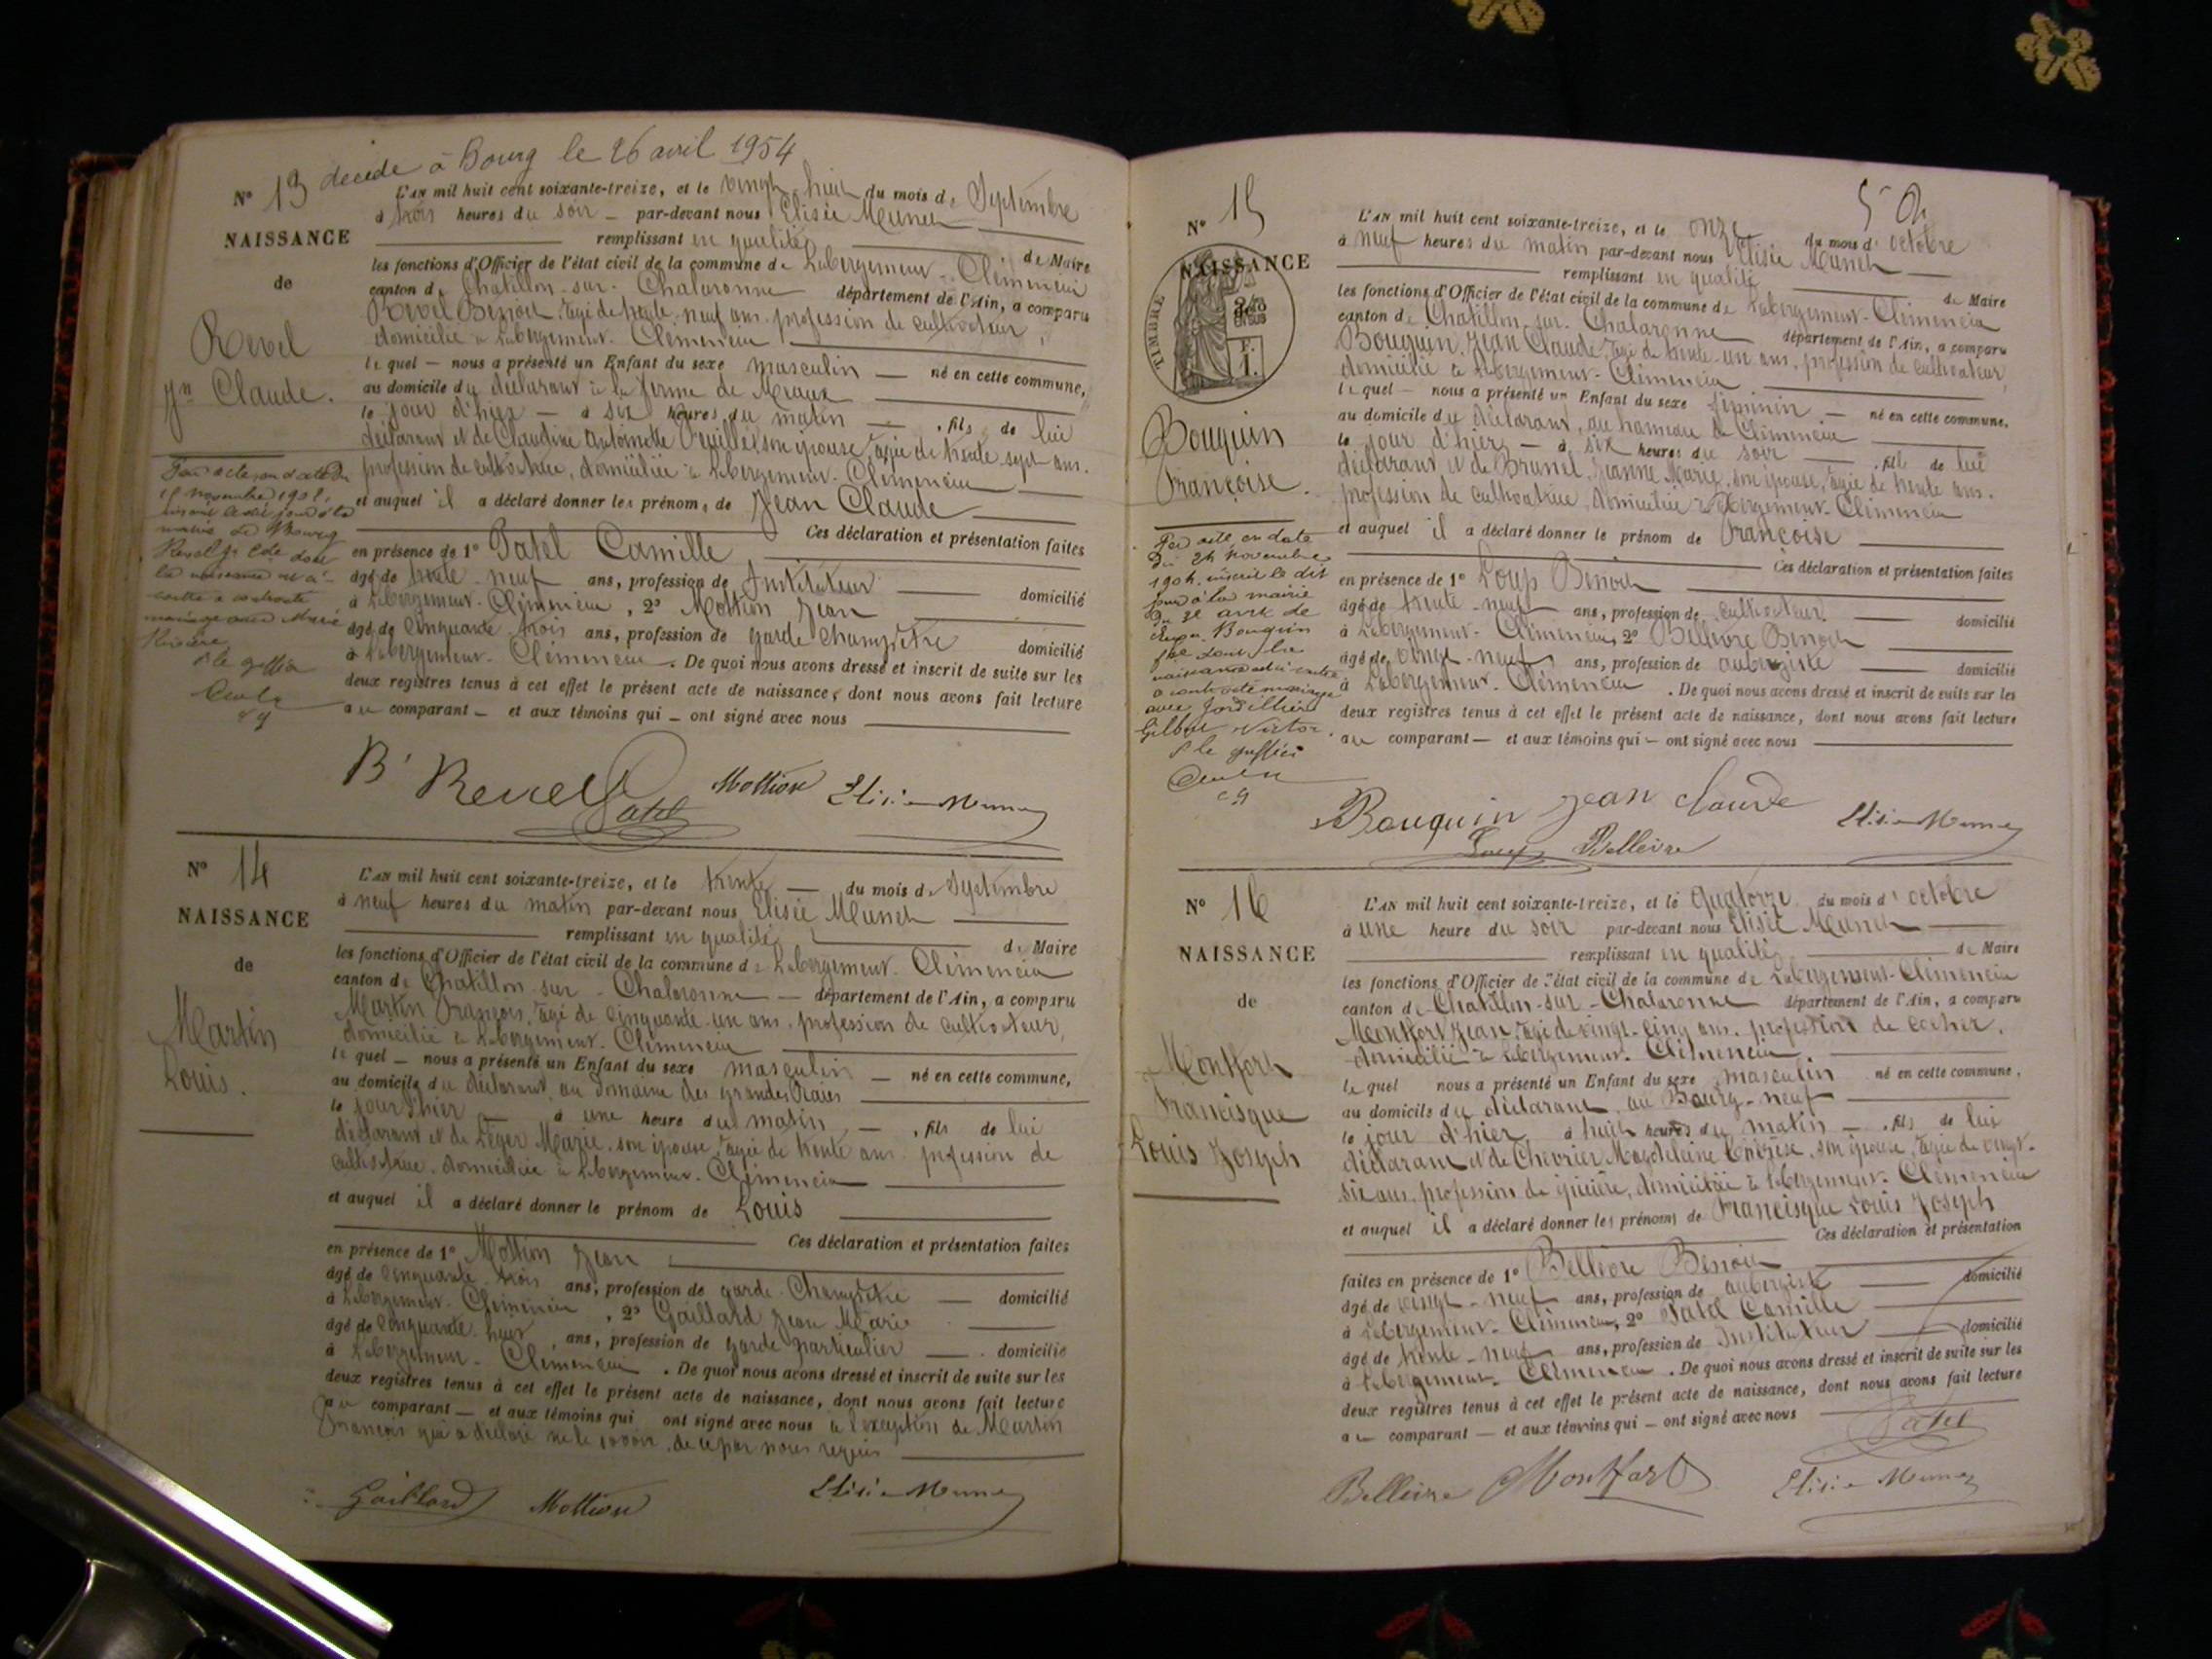 décédé à Bourg le 26 avril 1954
N° 13
NAISSANCE
de
Revel
Jn Claude.
L'AN mil huit cent soixante-treize, et le vingt-huit du mois de Septembre
à trois heures du soir — par-devant nous Elisée Munet
remplissant en qualité de Maire
les fonctions d'Officier de l'état civil de la commune de Labergement-Clémencia
canton de Chatillon-sur-Chalaronne département de l'Ain, a comparu
Revel Benoit, âgé de trente-neuf ans, profession de cultivateur,
domicilié à Labergement-Clémencia
lequel — nous a présenté un Enfant du sexe masculin — né en cette commune,
au domicile du déclarant à la ferme de
le jour d'hier — à six heures du matin — , fils de lui
déclarant et de Claudine Antoinette son épouse, âgée de trente sept ans.
profession de cultivatrice, domiciliée à Labergement-Clémencia
et auquel il a déclaré donner les prénoms de Jean Claude
Ces déclaration et présentation faites
en présence de 1° Patel Camille
âgé de trente-neuf ans, profession de Instituteur domicilié
à Labergement-Clémencia, 2° Mottion Jean
âgé de cinquante trois ans, profession de garde champêtre domicilié
à Labergement-Clémencia. De quoi nous avons dressé et inscrit de suite sur les
deux registres tenus à cet effet le présent acte de naissance, dont nous avons fait lecture
au comparant — et aux témoins qui — ont signé avec nous
Par acte en date du
novembre
inscrit le dit jour à la
mairie de Bourg
Revel Jn Cde dont
la naissance est ci-
contre a contracté
mariage avec Marie
P le greffier
B' Revel Patel Mottion Elisée Munet
N° 14
NAISSANCE
de
Martin
Louis.
L'AN mil huit cent soixante-treize, et le trente — du mois de Septembre
à neuf heures du matin par-devant nous Elisée Munet
remplissant en qualité de Maire
les fonctions d'Officier de l'état civil de la commune de Labergement-Clémencia
canton de Chatillon-sur-Chalaronne — département de l'Ain, a comparu
Martin François, âgé de cinquante-un ans, profession de cultivateur,
domicilié à Labergement-Clémencia
lequel — nous a présenté un Enfant du sexe masculin — né en cette commune,
au domicile du déclarant, au domaine des grandes
le jour d'hier — à une heure du matin — , fils de lui
déclarant et de Léger Marie, son épouse, âgée de trente ans, profession de
cultivatrice, domiciliée à Labergement-Clémencia
et auquel il a déclaré donner le prénom de Louis
Ces déclaration et présentation faites
en présence de 1° Mottion Jean
âgé de cinquante-trois ans, profession de garde-Champêtre — domicilié
à Labergement-Clémencia, 2° Gaillard Jean Marie
âgé de cinquante-huit ans, profession de garde particulier — domicilié
à Labergement-Clémencia. De quoi nous avons dressé et inscrit de suite sur les
deux registres tenus à cet effet le présent acte de naissance, dont nous avons fait lecture
au comparant — et aux témoins qui ont signé avec nous à l'exception de Martin
François qui a déclaré ne le savoir, de ce par nous requis
Gaillard Mottion Elisée Munet
N° 15
NAISSANCE
TIMBRE
Bouquin
Françoise.
L'AN mil huit cent soixante-treize, et le onze du mois d'octobre
à neuf heures du matin par-devant nous Elisée Munet —
remplissant en qualité de Maire
les fonctions d'Officier de l'état civil de la commune de Labergement-Clémencia
canton de Chatillon-sur-Chalaronne département de l'Ain, a comparu
Bouquin, Jean Claude, âgé de trente-un ans, profession de cultivateur,
domicilié à Labergement-Clémencia
lequel — nous a présenté un Enfant du sexe féminin — né en cette commune,
au domicile du déclarant, au hameau de Clémencia
le jour d'hier — à six heures du soir — , fille de lui
déclarant et de Brunel, Jeanne Marie, son épouse, âgée de trente ans.
profession de cultivatrice, domiciliée à Labergement-Clémencia
et auquel il a déclaré donner le prénom de Françoise
Ces déclaration et présentation faites
en présence de 1° Loup Benoit
âgé de trente-neuf ans, profession de cultivateur domicilié
à Labergement-Clémencia, 2° Bellivre Benoit
âgé de vingt-neuf ans, profession de aubergiste domicilié
à Labergement-Clémencia. De quoi nous avons dressé et inscrit de suite sur les
deux registres tenus à cet effet le présent acte de naissance, dont nous avons fait lecture
au comparant — et aux témoins qui — ont signé avec nous
Par acte en date
du novembre
inscrit le dit
jour à la mairie
du 2e arrt de
Bouquin
dont la
naissance est ci-contre
a contracté mariage
avec
Gilbert Victor.
P le greffier
Bouquin jean claude Elisée Munet
Loup Bellivre
N° 16
NAISSANCE
de
Montfort
Francisque
Louis Joseph
L'AN mil huit cent soixante-treize, et le quatorze du mois d'octobre
à une heure du soir par-devant nous Elisée Munet
remplissant en qualité de Maire
les fonctions d'Officier de l'état civil de la commune de Labergement-Clémencia
canton de Chatillon-sur-Chalaronne département de l'Ain, a comparu
Montfort Jean, âgé de vingt-cinq ans, profession de cocher,
domicilié à Labergement-Clémencia.
lequel nous a présenté un Enfant du sexe masculin né en cette commune,
au domicile du déclarant, au Bourg-neuf
le jour d'hier à huit heures du matin — , fils de lui
déclarant et de Chevrier Magdeleine Thérèse, son épouse, âgée de vingt-
six ans, profession de épicière, domiciliée à Labergement-Clémencia
et auquel il a déclaré donner les prénoms de Francisque Louis Joseph
Ces déclaration et présentation
faites en présence de 1° Bellivre Benoit
âgé de vingt-neuf ans, profession de aubergiste domicilié
à Labergement-Clémencia, 2° Patel Camille
âgé de trente-neuf ans, profession de Instituteur domicilié
à Labergement-Clémencia. De quoi nous avons dressé et inscrit de suite sur les
deux registres tenus à cet effet le présent acte de naissance, dont nous avons fait lecture
au comparant — et aux témoins qui — ont signé avec nous
Patel
Bellivre Montfort Elisée Munet